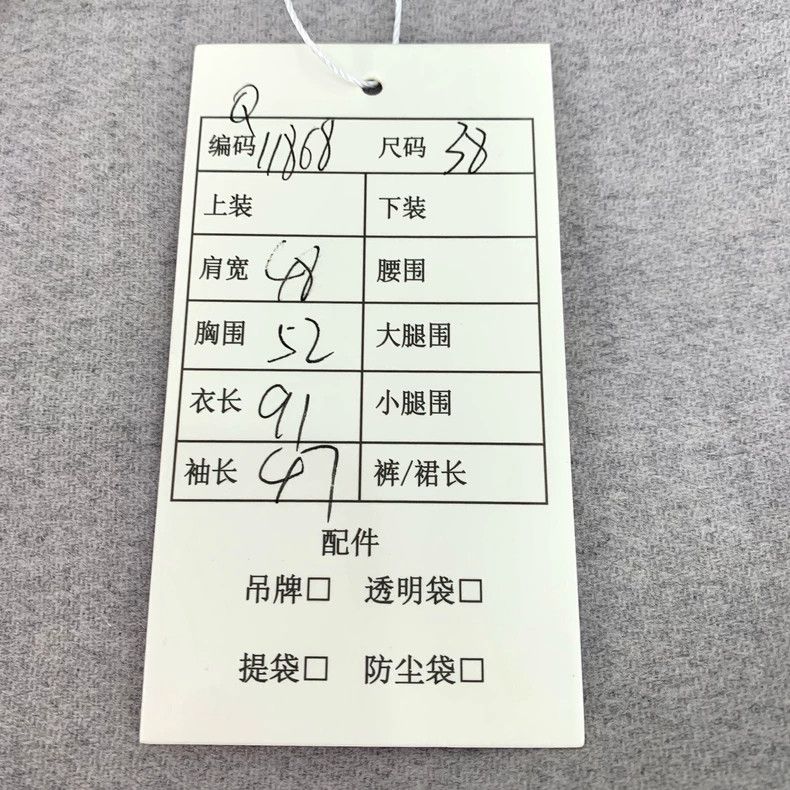 Q
编码 11868 尺码 38
上装 下装
肩宽 48 腰围
胸围 52 大腿围
衣长 91 小腿围
袖长 47 裤/裙长
配件
吊牌□ 透明袋□
提袋□ 防尘袋□